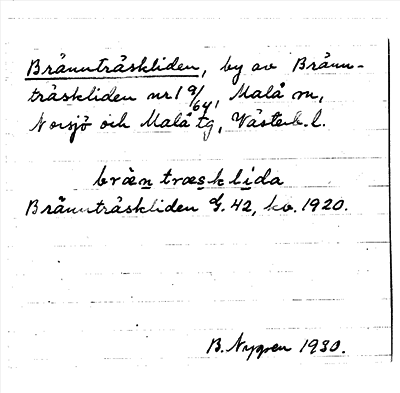 Brännträskliden, by av Bränn-
träskliden nr 1 9/64, Malå sn,
Norsjö och Malå tg, Västerb. l.
bræn træsk lida
Brännträskliden G. 42, ko. 1920.
B. Nygren 1930.